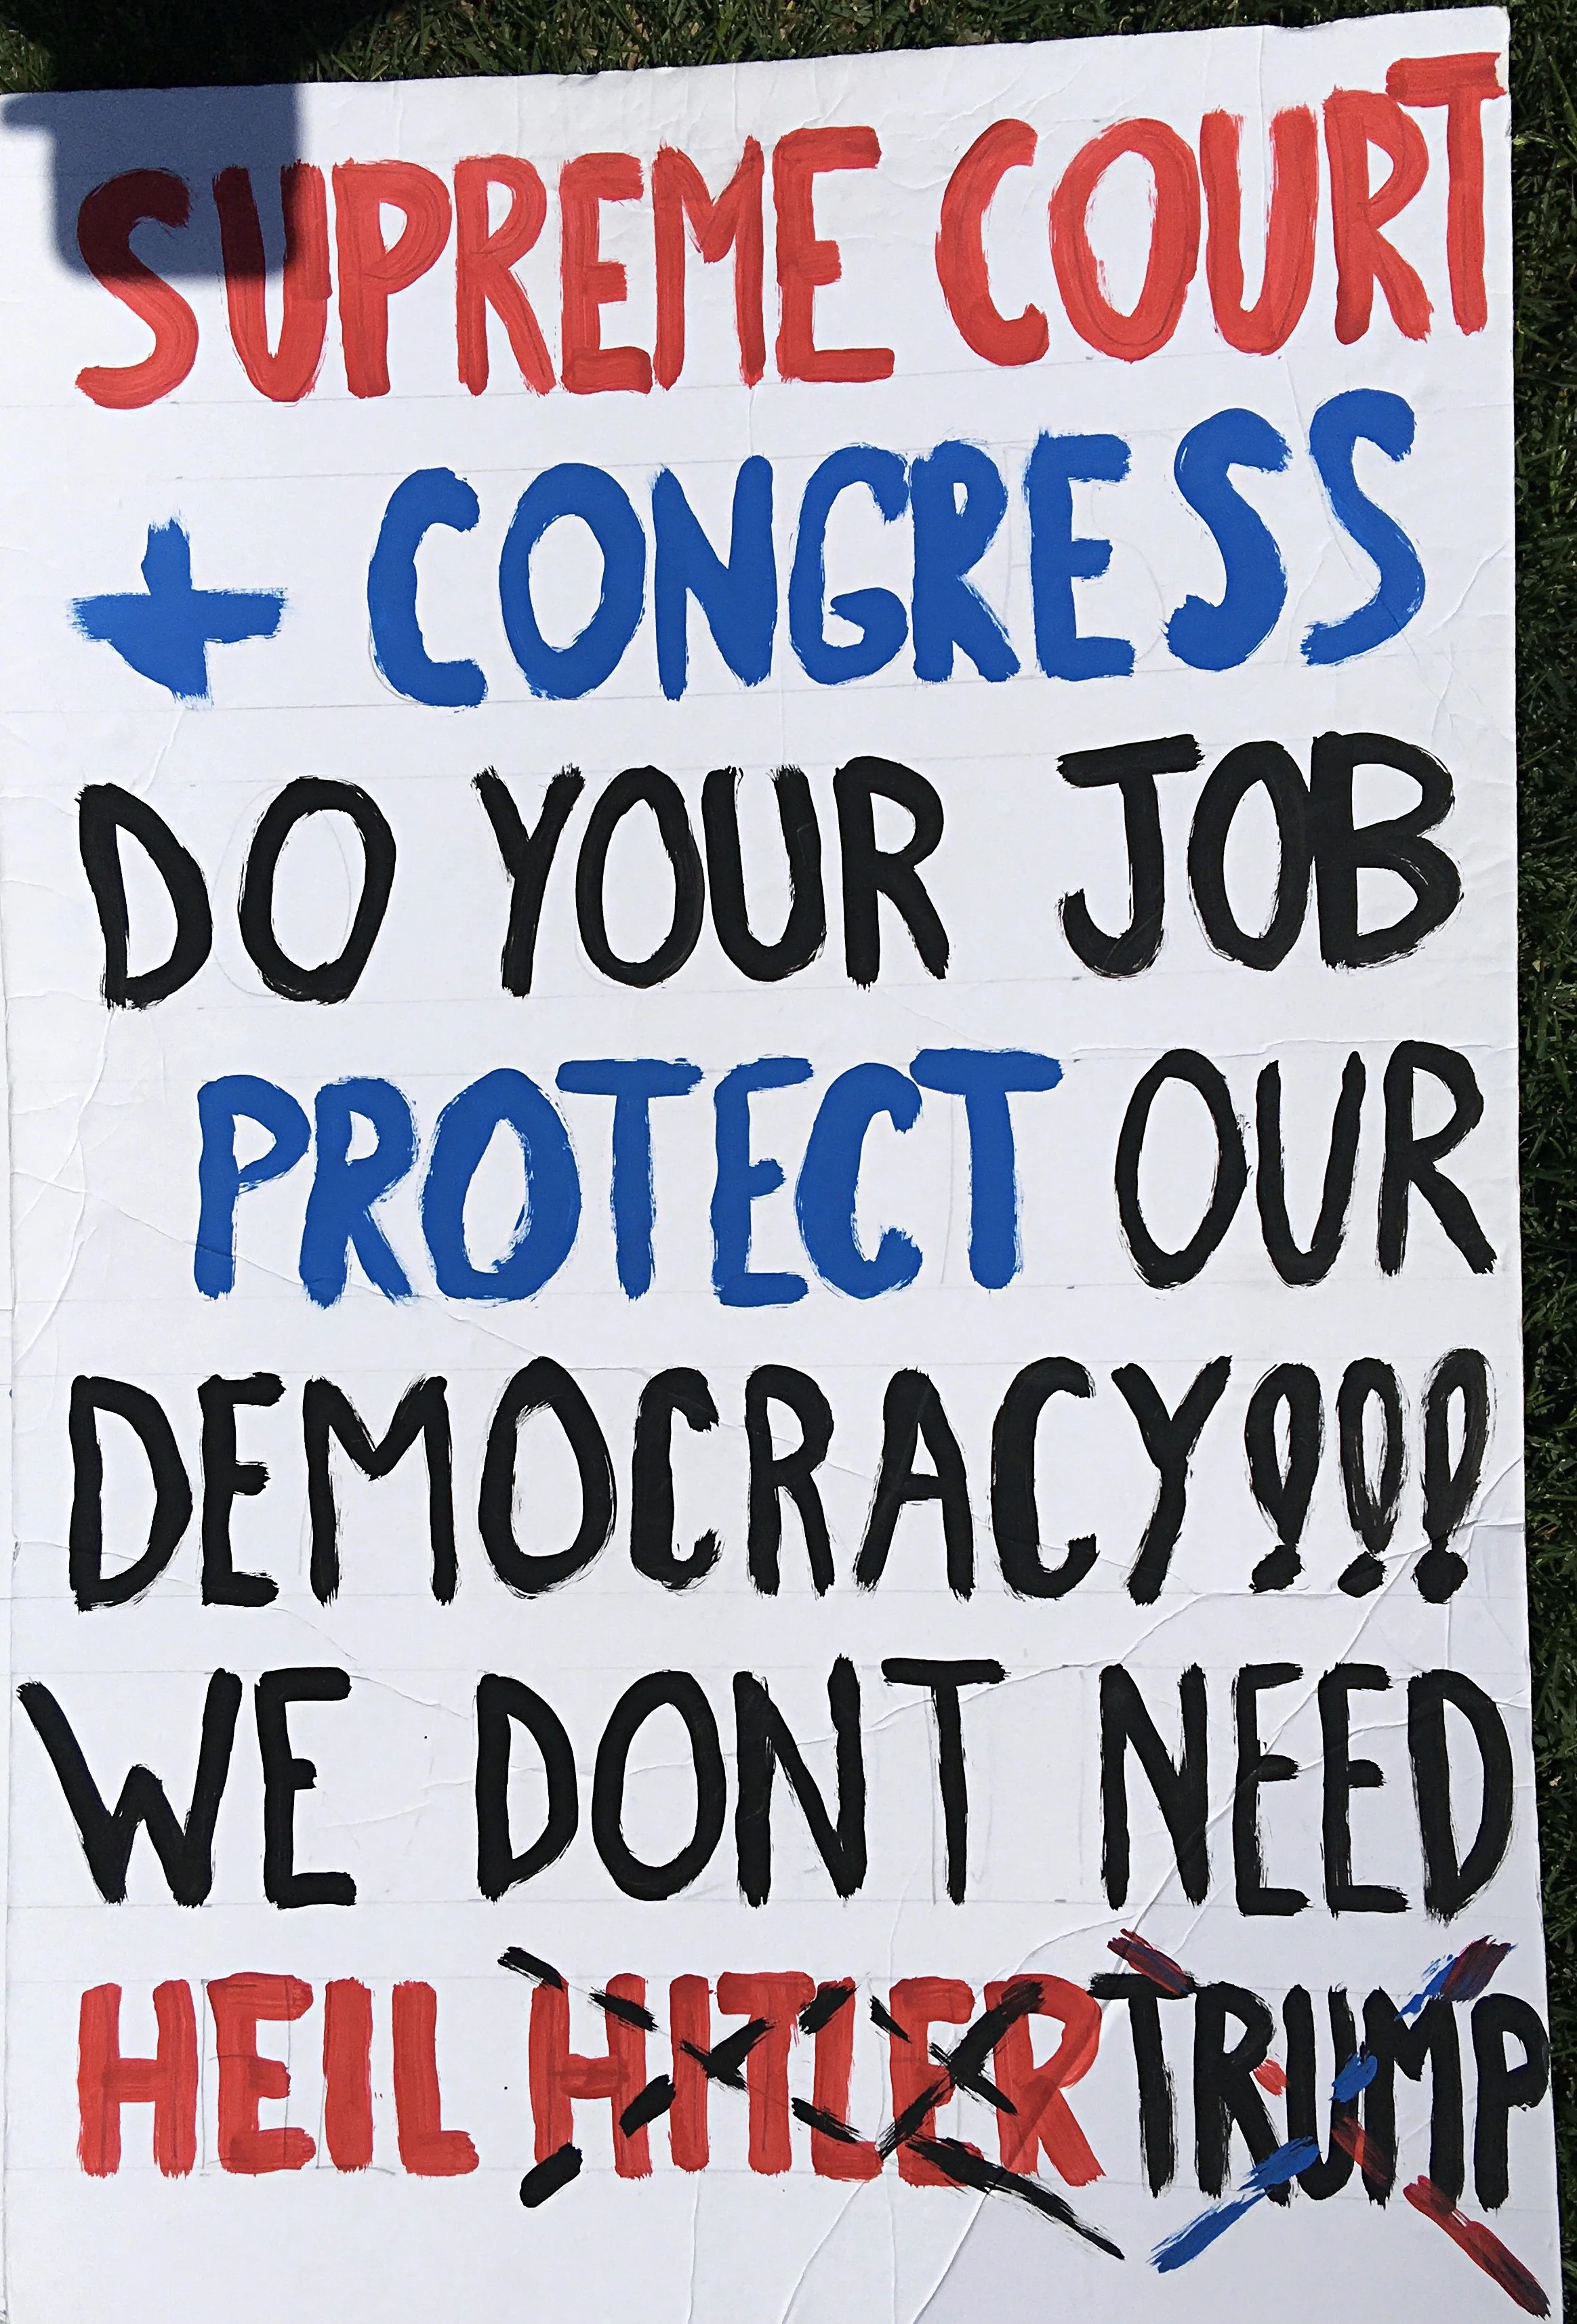 SUPREME COURT
+ CONGRESS
DO YOUR JOB
PROTECT OUR
DEMOCRACY!!!
WE DONT NEED
HEIL HITLER TRUMP